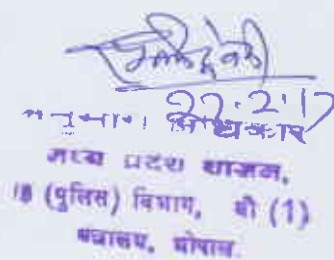 27.2.17
अनुभाग अधिकारी
मध्य प्रदेश शासन,
(पुलिस) विभाग, बी (1)
मंत्रालय, भोपाल